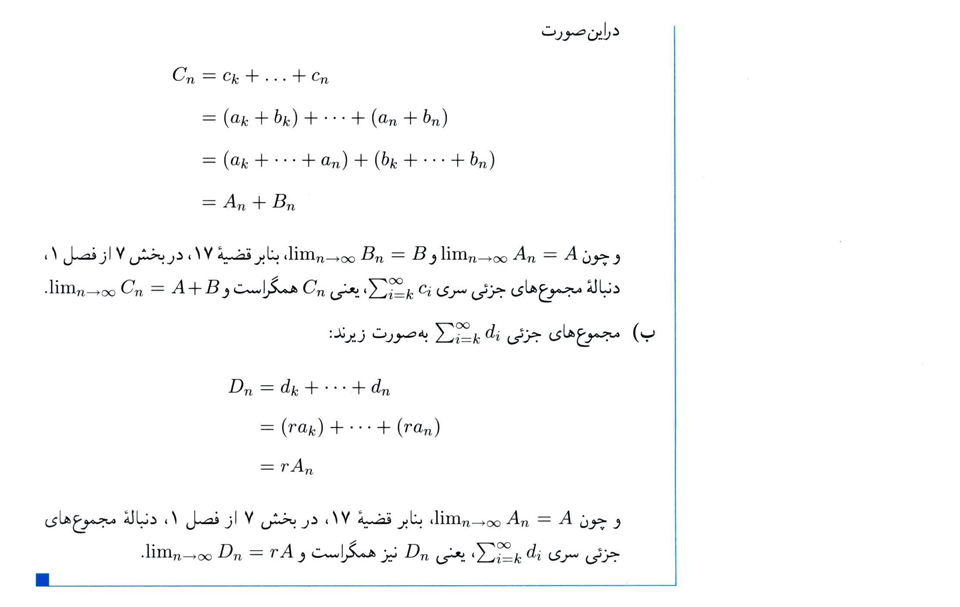 دراین‌صورت
C_n = c_k + ... + c_n
= (a_k + b_k) + ⋯ + (a_n + b_n)
= (a_k + ⋯ + a_n) + (b_k + ⋯ + b_n)
= A_n + B_n
و چون lim_{n→∞} A_n = A و lim_{n→∞} B_n = B، بنابر قضیهٔ ۱۷، در بخش ۷ از فصل ۱،
دنبالهٔ مجموع‌های جزئی سری ∑_{i=k}^∞ c_i، یعنی C_n همگراست و lim_{n→∞} C_n = A+B.
ب) مجموع‌های جزئی ∑_{i=k}^∞ d_i به‌صورت زیرند:
D_n = d_k + ⋯ + d_n
= (ra_k) + ⋯ + (ra_n)
= rA_n
و چون lim_{n→∞} A_n = A، بنابر قضیهٔ ۱۷، در بخش ۷ از فصل ۱، دنبالهٔ مجموع‌های
جزئی سری ∑_{i=k}^∞ d_i، یعنی D_n نیز همگراست و lim_{n→∞} D_n = rA.